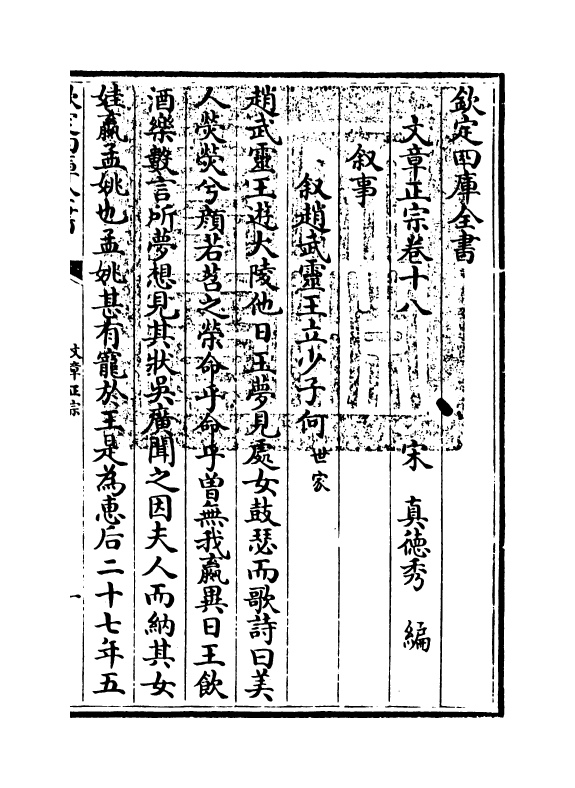 欽定四庫全書
文章正宗卷十八
宋 真徳秀 編
叙事
叙趙武靈王立少子何 世家
趙武靈王遊大陵他日王夢見處女鼓瑟而歌詩曰美
人熒熒兮顔若苕之榮命乎命乎曽無我嬴異日王飲
酒樂數言所夢想見其狀吳廣聞之因夫人而納其女
娃嬴孟姚也孟姚甚有寵於王是為惠后二十七年五
欽定四庫全書
文章正宗
一